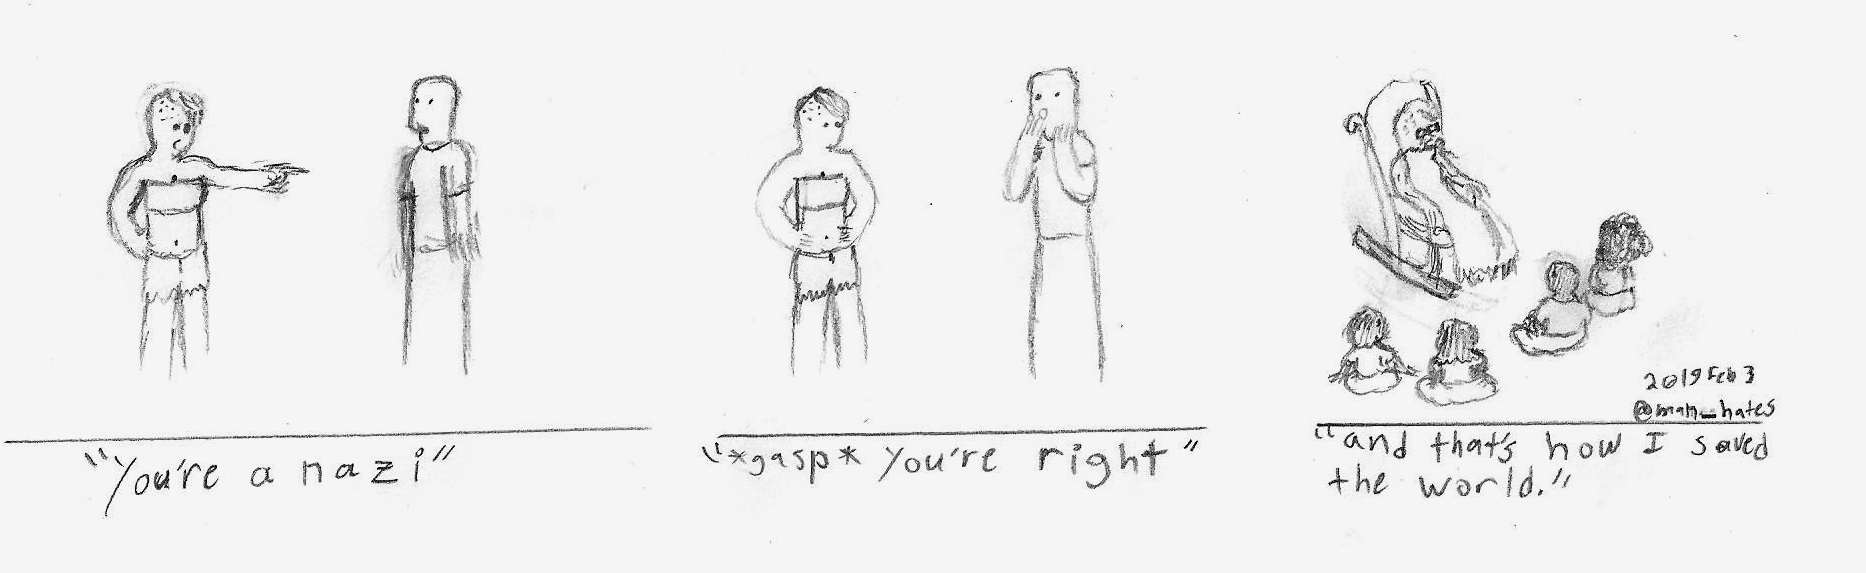 "You're a nazi"
"*gasp* you're right"
2019 Feb 3
@man_hates
"and that's how I saved
the world."